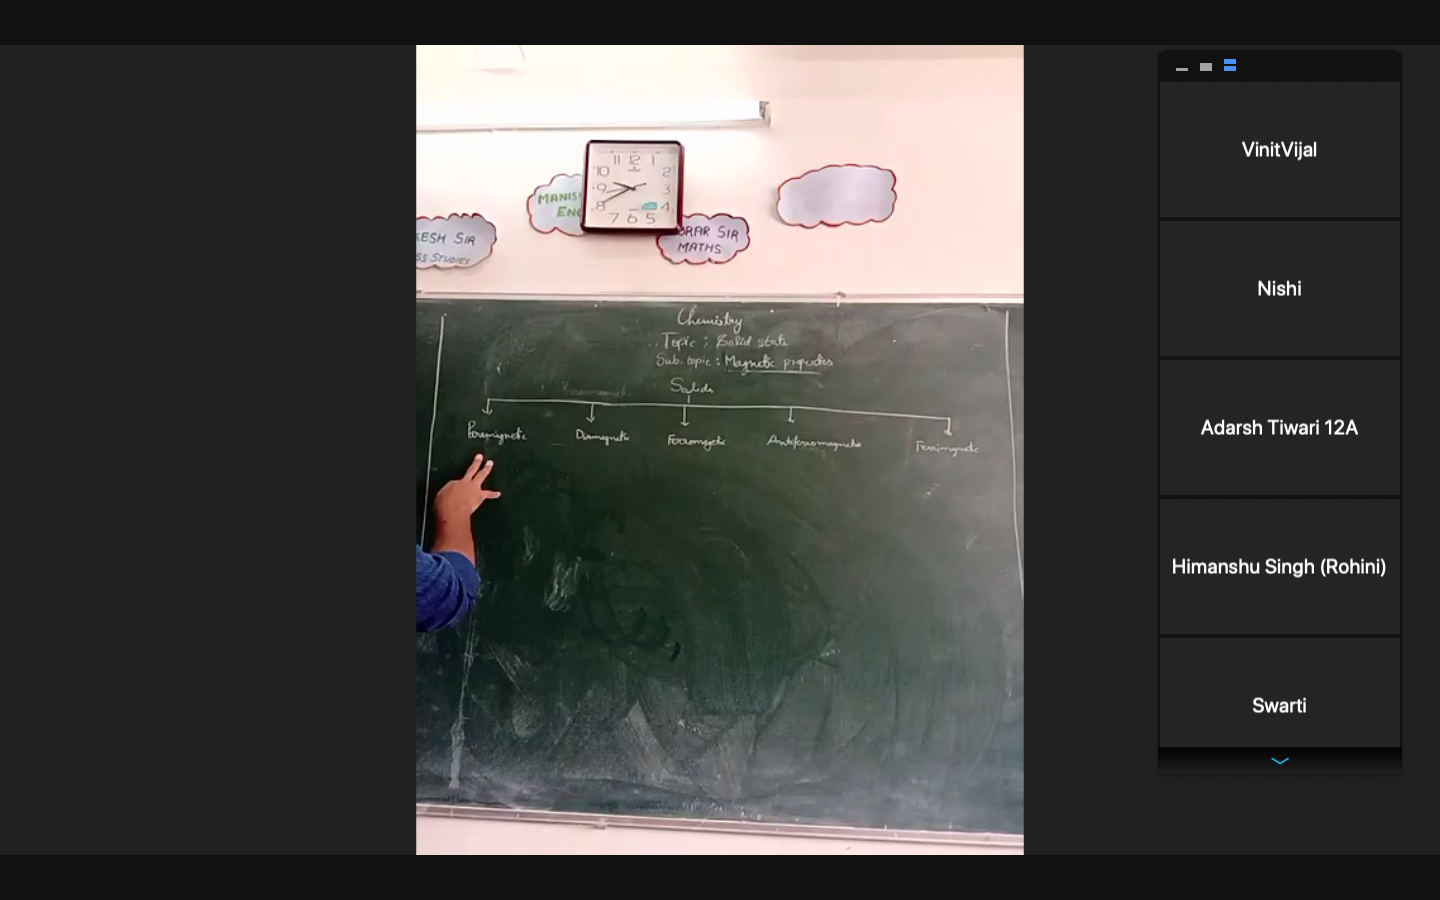 11 12 1
10 2
9 3
8 4
7 6 5
MANIS
EN
ESH SIR
SS STUDIES
RAR SIR
MATHS
Chemistry
Topic : Solid state
Sub. topic : Magnetic properties
Solids
Paramagnetic Diamagnetic Ferromagnetic Antiferromagnetic Ferrimagnetic
VinitVijal
Nishi
Adarsh Tiwari 12A
Himanshu Singh (Rohini)
Swarti